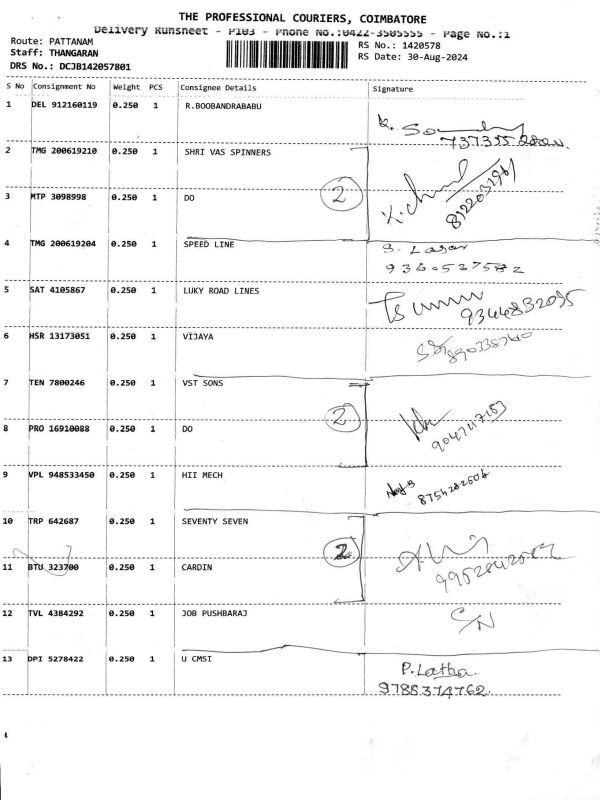 THE PROFESSIONAL COURIERS, COIMBATORE
Delivery Runsheet - P103 - Phone No.:0422-3505555 - Page No.:1
Route: PATTANAM
RS No.: 1420578
Staff: THANGARAN
RS Date: 30-Aug-2024
DRS No.: DCJB142057801
S No Consignment No Weight PCS Consignee Details Signature
1 DEL 912160119 0.250 1 R.BOOBANDRABABU
2 TMG 200619210 0.250 1 SHRI VAS SPINNERS
3 MTP 3098998 0.250 1 DO 2
4 TMG 200619204 0.250 1 SPEED LINE
9360527582
5 SAT 4105867 0.250 1 LUKY ROAD LINES
9344832095
6 HSR 13173051 0.250 1 VIJAYA
7 TEN 7800246 0.250 1 VST SONS
2
8 PRO 16910088 0.250 1 DO
9 VPL 948533450 0.250 1 HII MECH
10 TRP 642687 0.250 1 SEVENTY SEVEN
2
11 BTU 323700 0.250 1 CARDIN
12 TVL 4384292 0.250 1 JOB PUSHBARAJ C/N
13 DPI 5278422 0.250 1 U CMSI
P.Latha
9788374762